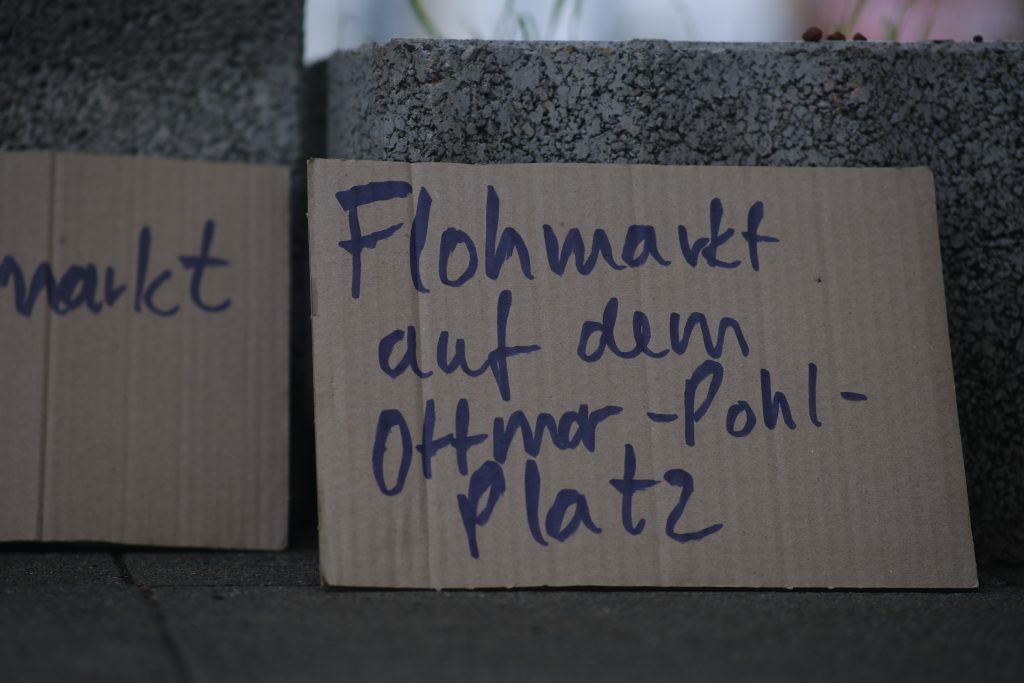 markt
Flohmarkt
auf dem
Ottmar-Pohl-
Platz